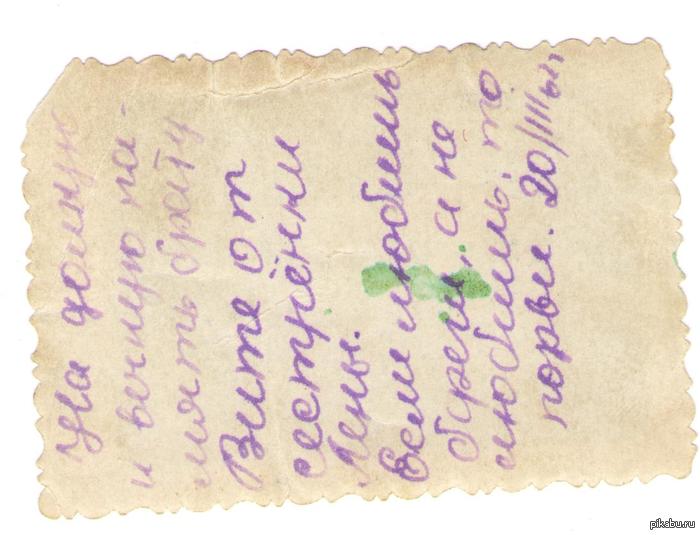 На долгую
и вечную па-
мять брату
Вите от
сестрёнки
Лены.
Если любишь
береги, а не
любишь, то
порви. 20/III
pikabu.ru